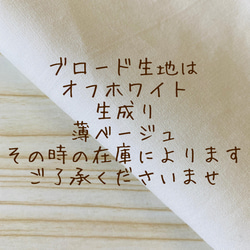 ブロード生地は
オフホワイト
生成り
薄ベージュ
その時の在庫によります
ご了承くださいませ